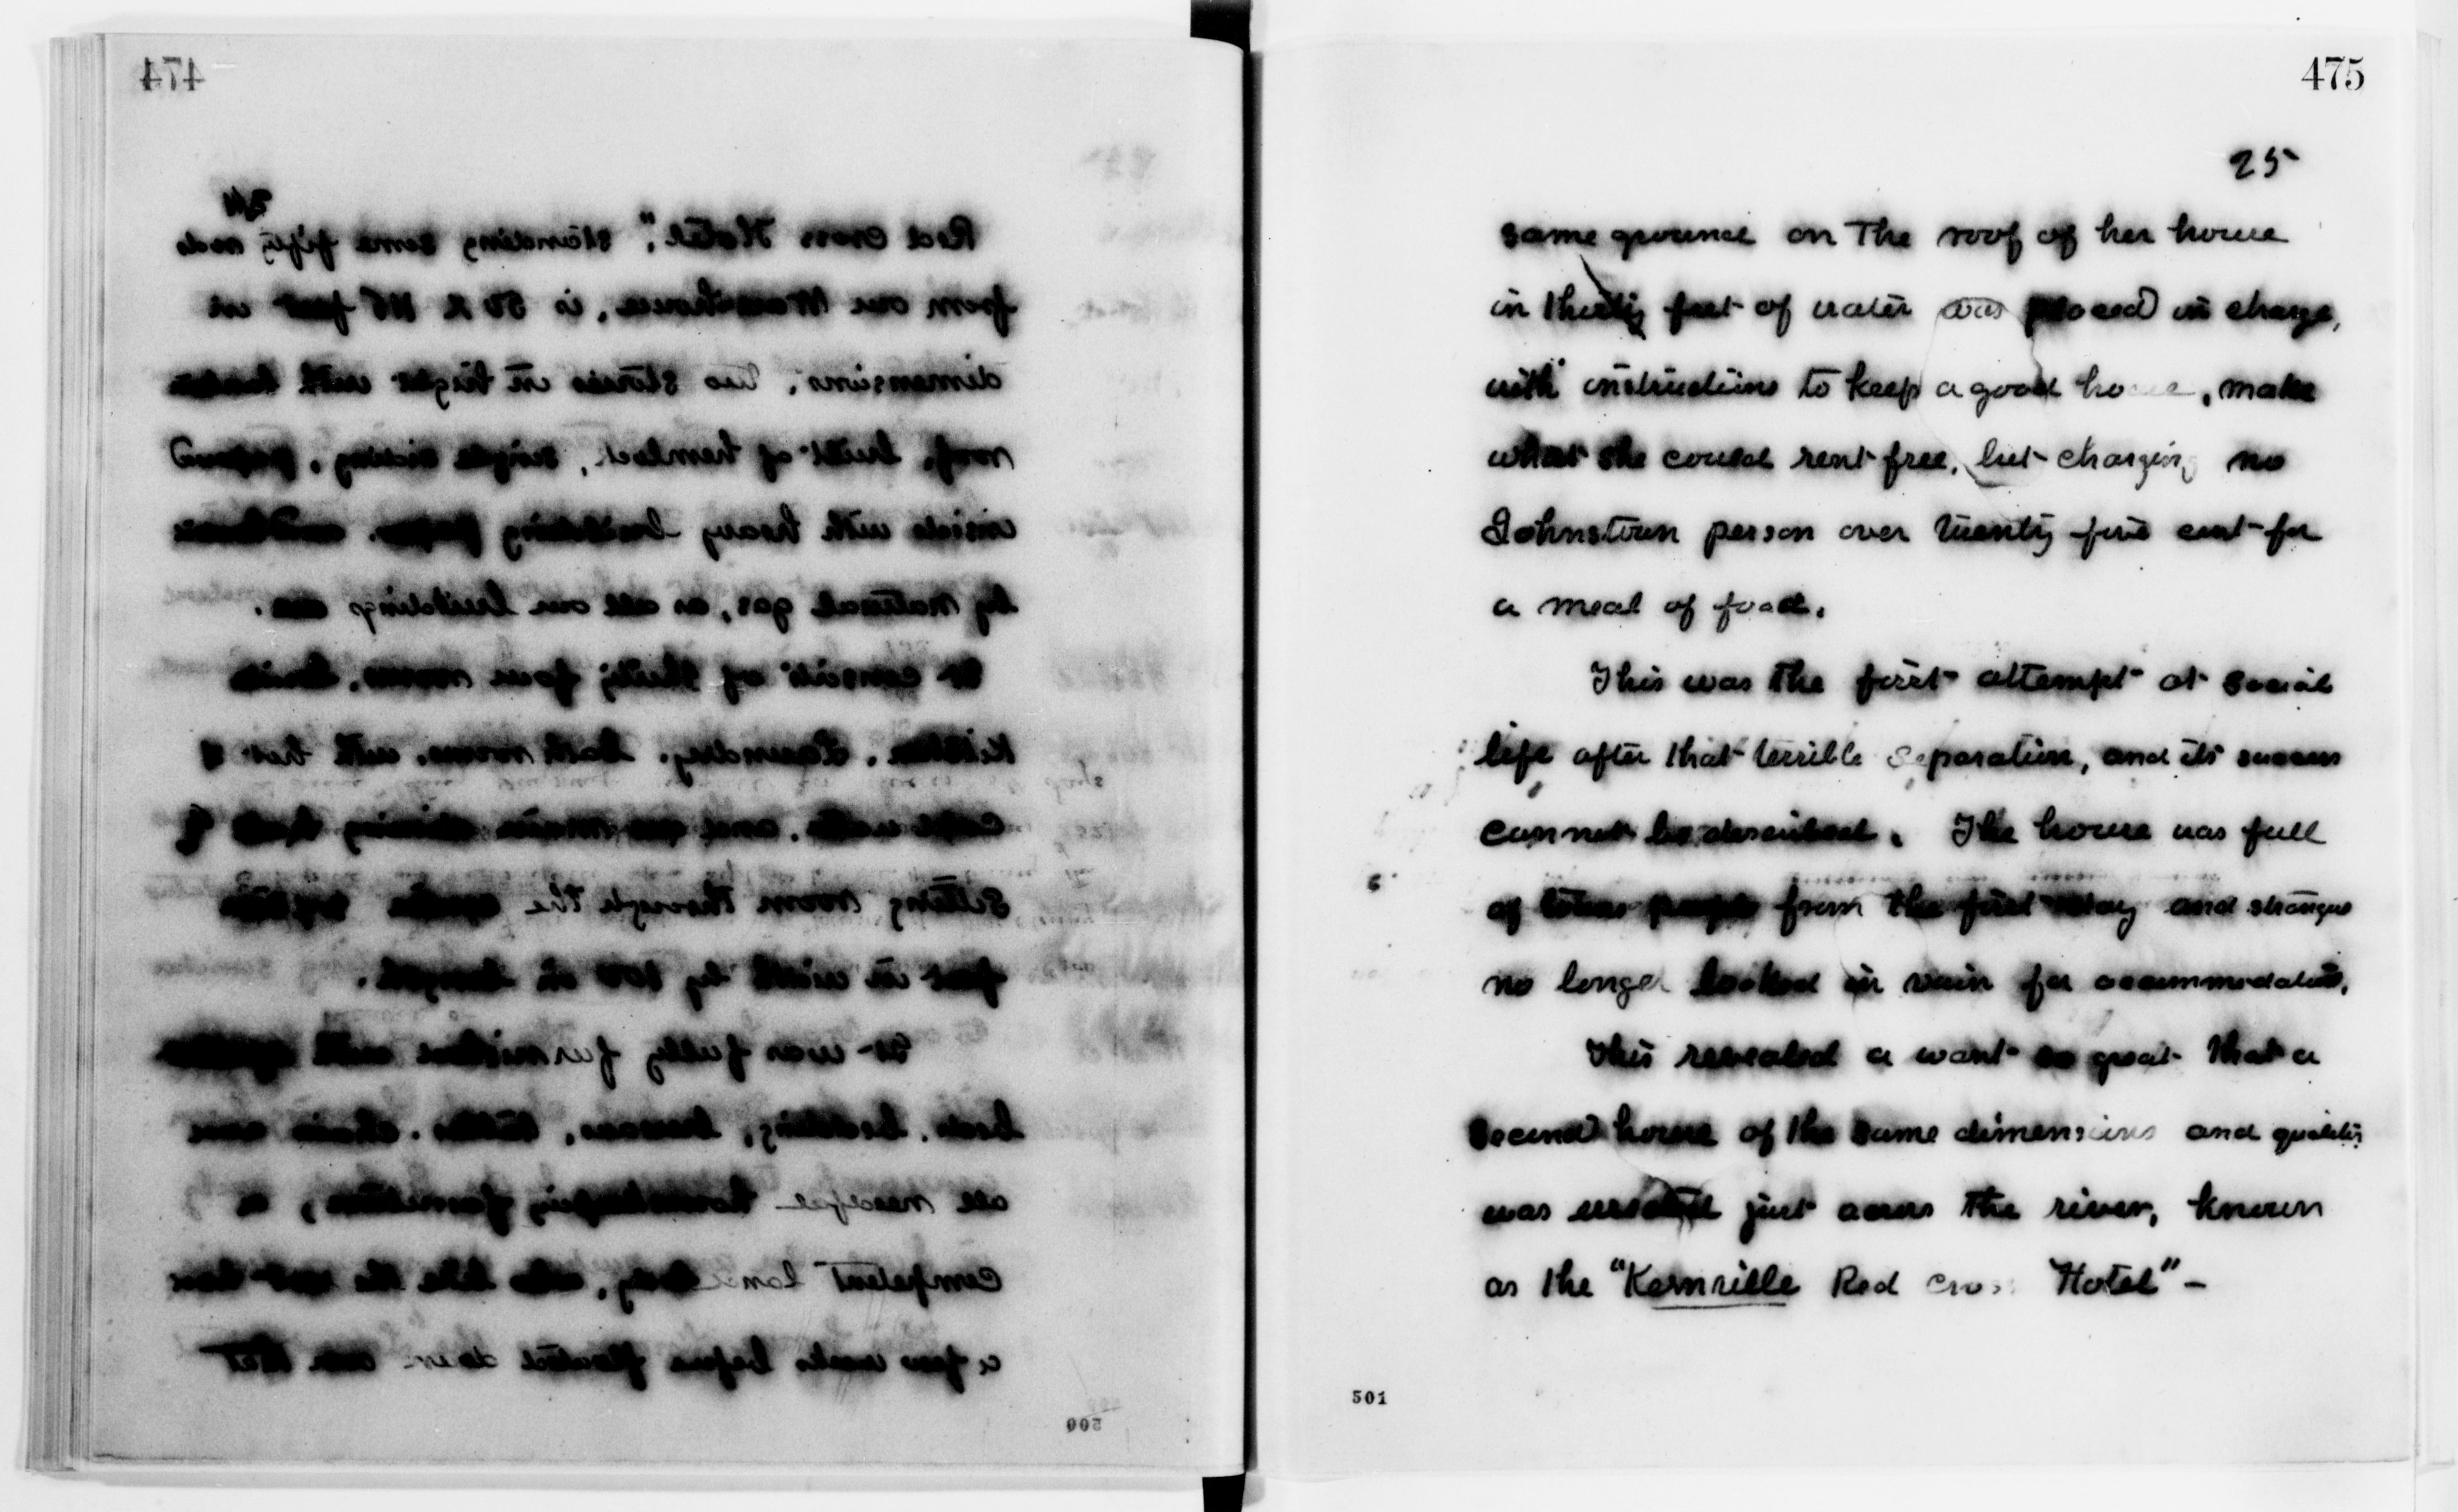 474
24
Red Cross Hotel", standing some fifty rods
from our Warehouse, is 50 x 115 feet in
dimensions, two stories in hight with
roof, built of hemlock, single siding, papered
inside with heavy building paper,
by natural gas, as all our buildings are.
It consists of thirty four rooms,
Kitchen, Laundry, bath rooms, with hot &
cold water, and main dining hall &
sitting room through the
feet in width by 100 in length.
It was fully furnished with
beds, bedding, bureaus, tables, chairs and
all needful housekeeping furniture, a
competent land lady, who like the rest had
a few weeks before floated down over that
200
475
25
same ground on The roof of her house
in thirty feet of water was placed in charge,
with instructions to keep a good house, make
what she could rent free, but charging no
Johnstown person over twenty five cent for
a meal of food.
This was the first attempt at social
life after that terrible separation, and its success
cannot be described. The house was full
of towns people from the first day and strangers
no longer looked in vain for accommodation,
This revealed a want so great that a
second house of the same dimensions and quality
was erected just across the river, known
as the "Kernville Red Cross Hotel" —
501